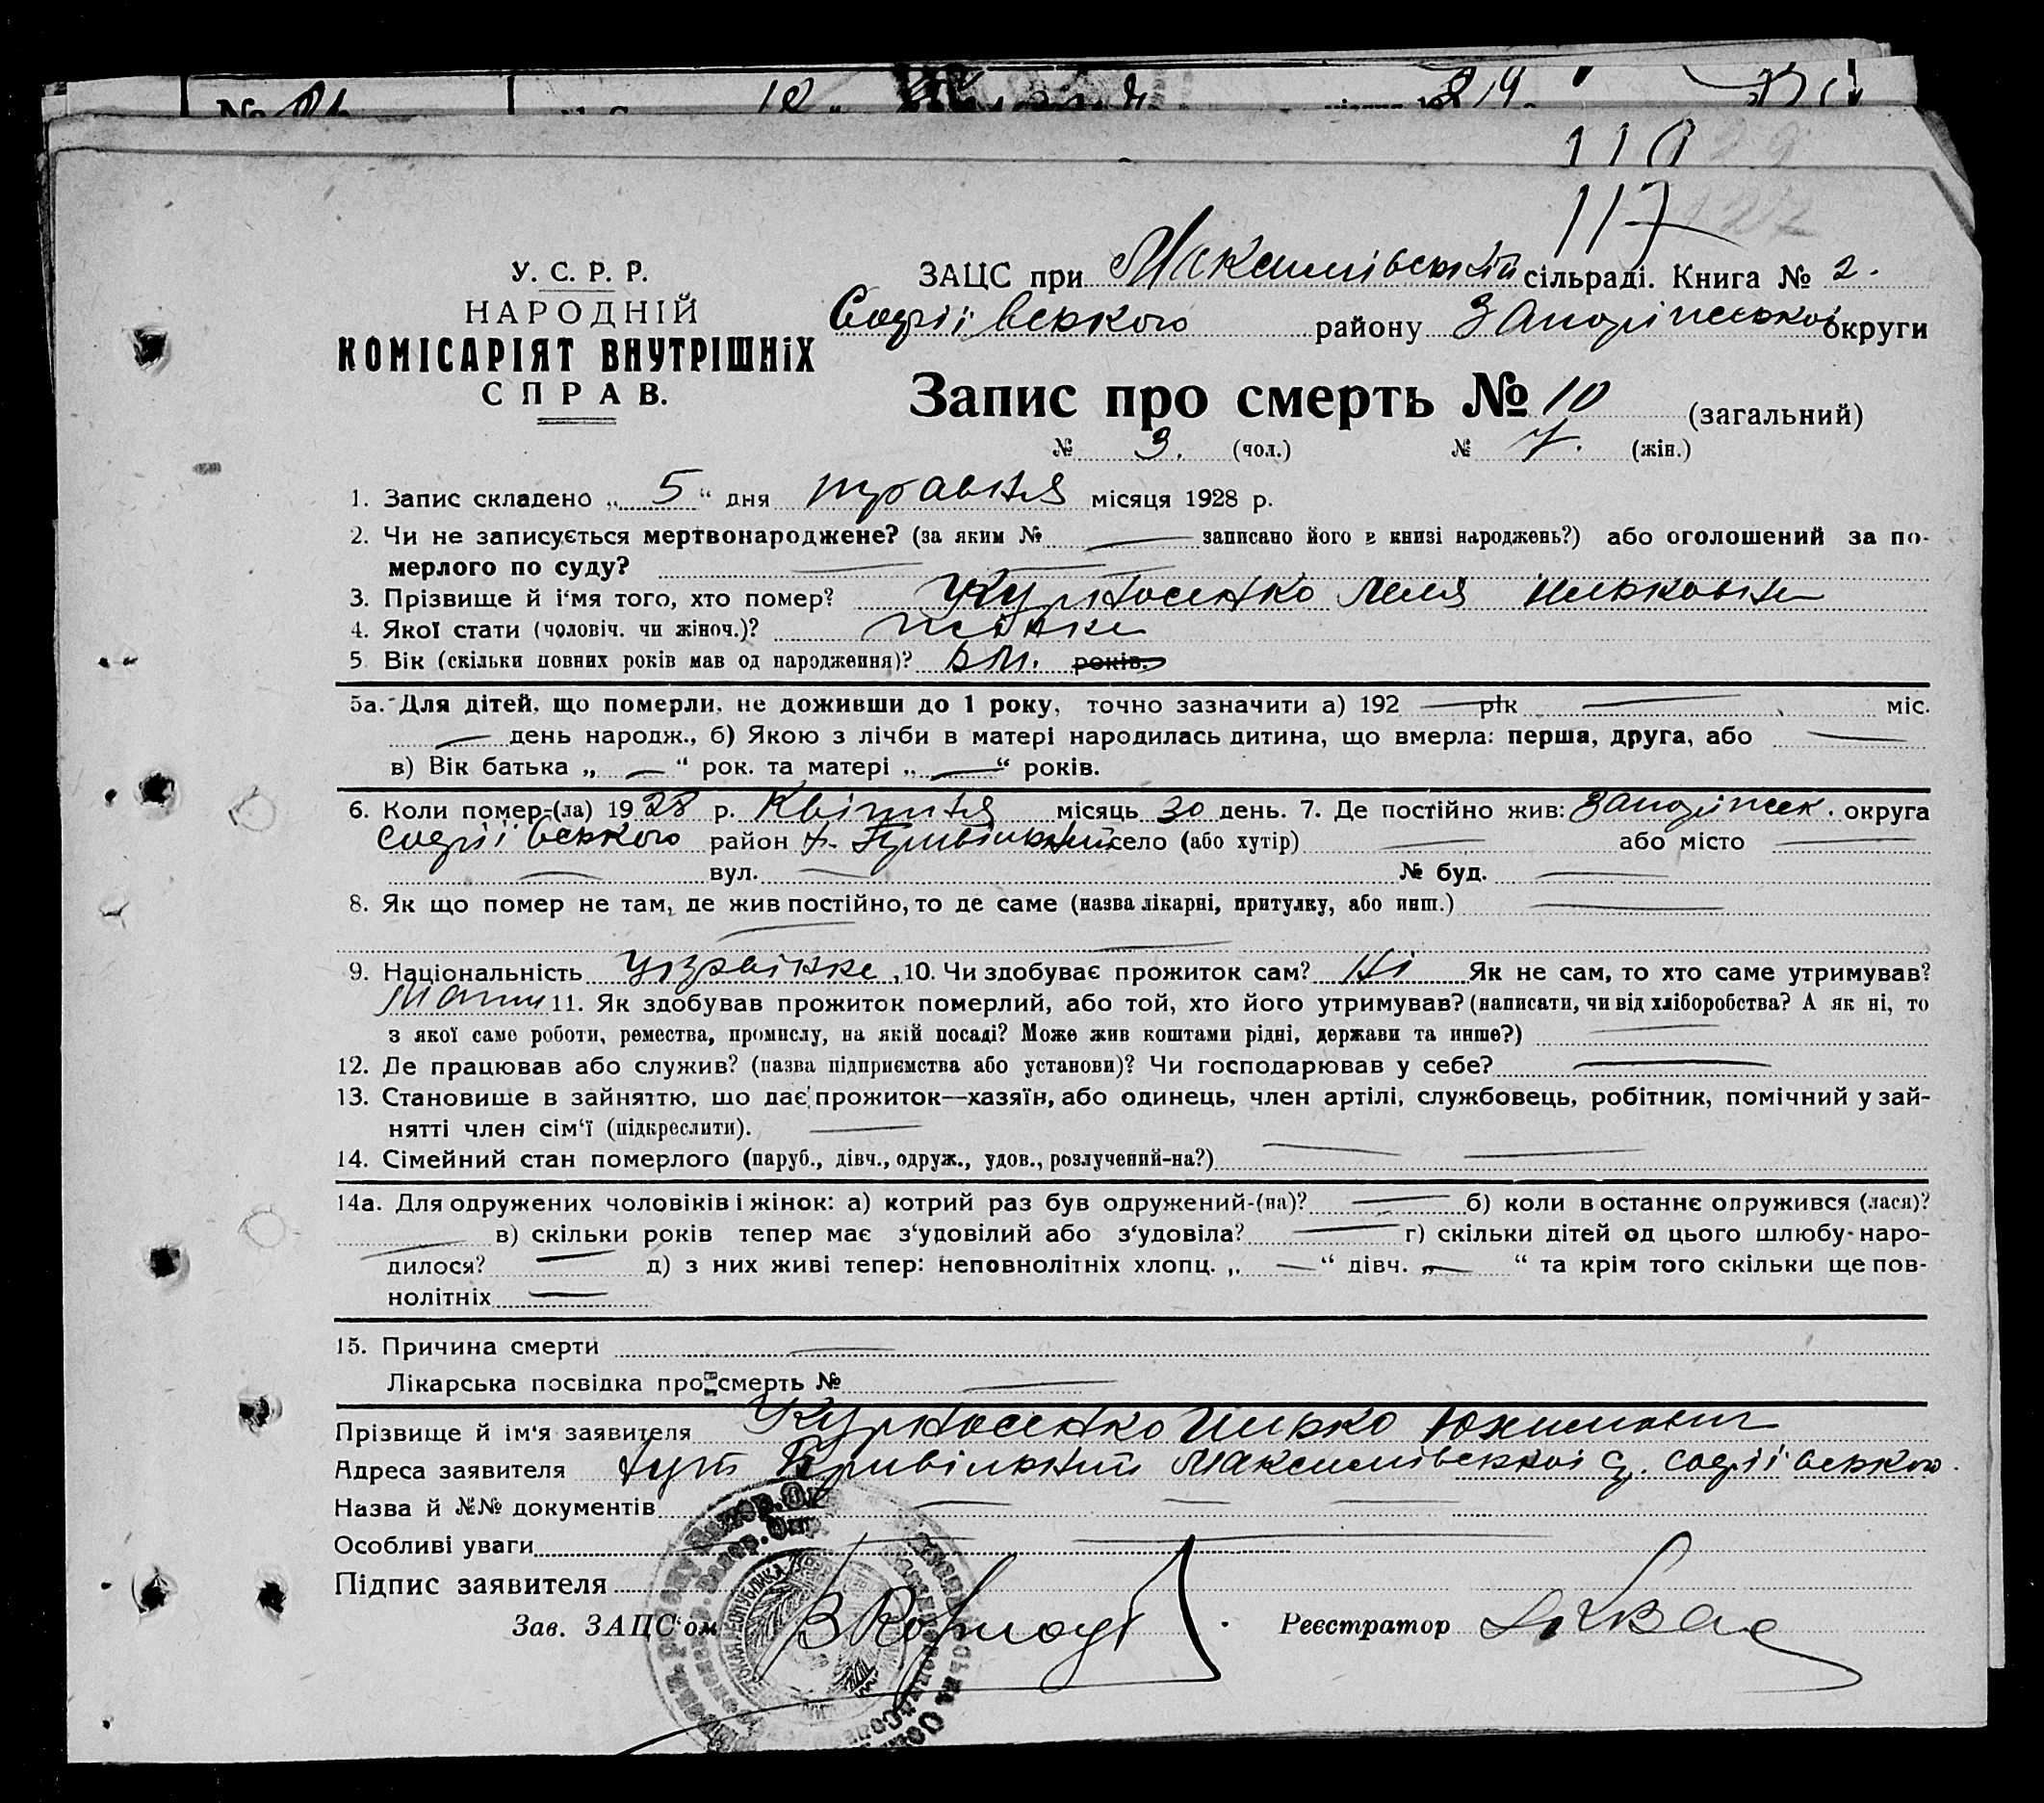 110
117
127
У. С. Р. Р.
НАРОДНІЙ
КОМІСАРІЯТ ВНУТРІШНІХ
СПРАВ.
ЗАЦС при Максимівській сільраді. Книга № 2.
Софіївського району Запоріжської округи
Запис про смерть № 10 (загальний)
№ 3. (чол.) № 7. (жін.)
1. Запис складено „ 5 “ дня травня місяця 1928 р.
2. Чи не записується мертвонароджене? (за яким № — записано його в книзі народжень?) або оголошений за по-
мерлого по суду? —
3. Прізвище й і‘мя того, хто помер? Курносенко Леля
4. Якої стати (чоловіч. чи жіноч.)? жінка
5. Вік (скільки повних років мав од народження)? 5 м. років.
5а. Для дітей, що померли, не доживши до 1 року, точно зазначити а) 192 — рік — міс.
— день народж., б) Якою з лічби в матері народилась дитина, що вмерла: перша, друга, або —
в) Вік батька „ — “ рок. та матері „ — “ років.
6. Коли помер-(ла) 1928 р. Квітня місяць 30 день. 7. Де постійно жив: Запоріжськ. округа
Софіївського район х. село (або хутір) — або місто —
— вул. — № буд. —
8. Як що помер не там, де жив постійно, то де саме (назва лікарні, притулку, або инш.) —
9. Національність українка, 10. Чи здобуває прожиток сам? ні Як не сам, то хто саме утримував?
11. Як здобував прожиток померлий, або той, хто його утримував? (написати, чи від хліборобства? А як ні, то
з якої саме роботи, ремества, промислу, на якій посаді? Може жив коштами рідні, держави та инше?) —
12. Де працював або служив? (назва підприємства або установи)? Чи господарював у себе? —
13. Становище в зайняттю, що дає прожиток—хазяїн, або одинець, член артілі, службовець, робітник, помічний у зай-
нятті член сім‘ї (підкреслити). —
14. Сімейний стан померлого (паруб., дівч., одруж., удов., розлучений-на?) —
14а. Для одружених чоловіків і жінок: а) котрий раз був одружений-(на)? — б) коли в останнє одружився (лася)?
— в) скільки років тепер має з‘удовілий або з‘удовіла? — г) скільки дітей од цього шлюбу наро-
дилося? — д) з них живі тепер: неповнолітніх хлопц. „ — “ дівч. „ — “ та крім того скільки ще пов-
нолітніх —
15. Причина смерти —
Лікарська посвідка про смерть № —
Прізвище й ім‘я заявителя Курносенко Юхимович
Адреса заявителя хут Максимівської с/р. Софіївського
Назва й №№ документів —
Особливі уваги —
Підпис заявителя
Зав. ЗАЦС‘ом
Реєстратор